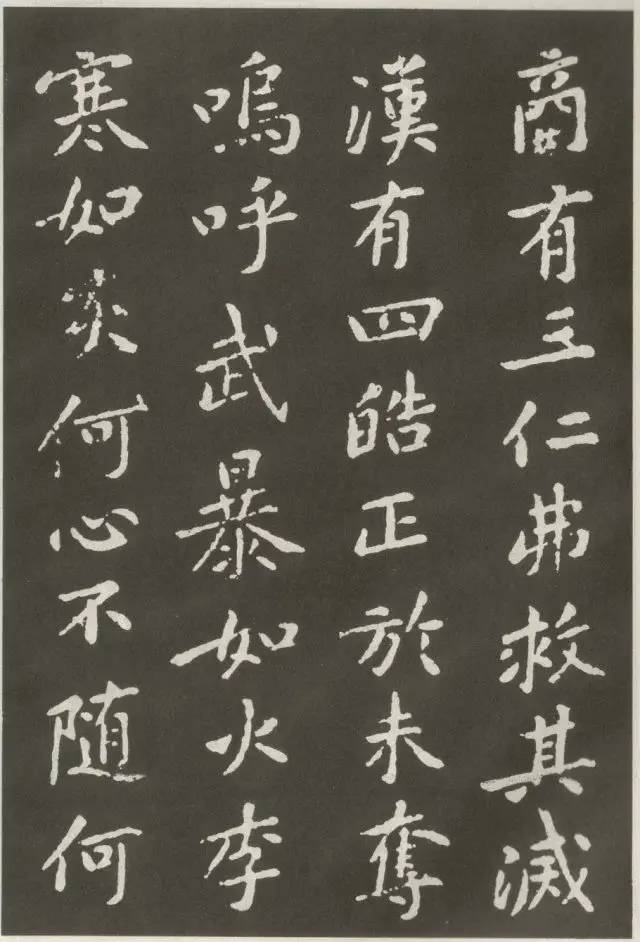 商有三仁弗救其滅
漢有四皓正於未奪
嗚呼武暴如火李
寒如灰何心不随何